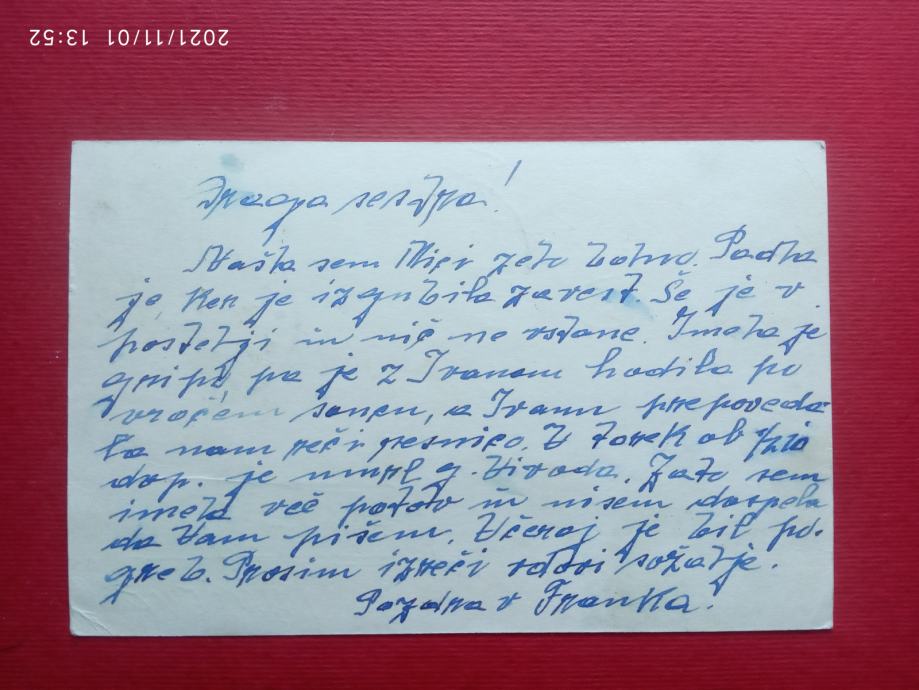 2021/11/01 13:52
Draga sestra!
Našla sem Mici zelo bolno. Padla
je, ker je izgubila zavest. Še je v
postelji in nič ne vstane. Imela je
gripo, pa je z Ivanom hodila po
vročem soncu, a Ivanu prepoveda-
la nam reči resnico. V torek ob
dop. je umrl g. Zivoda. Zato sem
imela več potov in nisem dospela
da Vam pišem. Včeraj je bil po-
greb. Prosim izreči vdovi sožalje.
Pozdrav Franka.